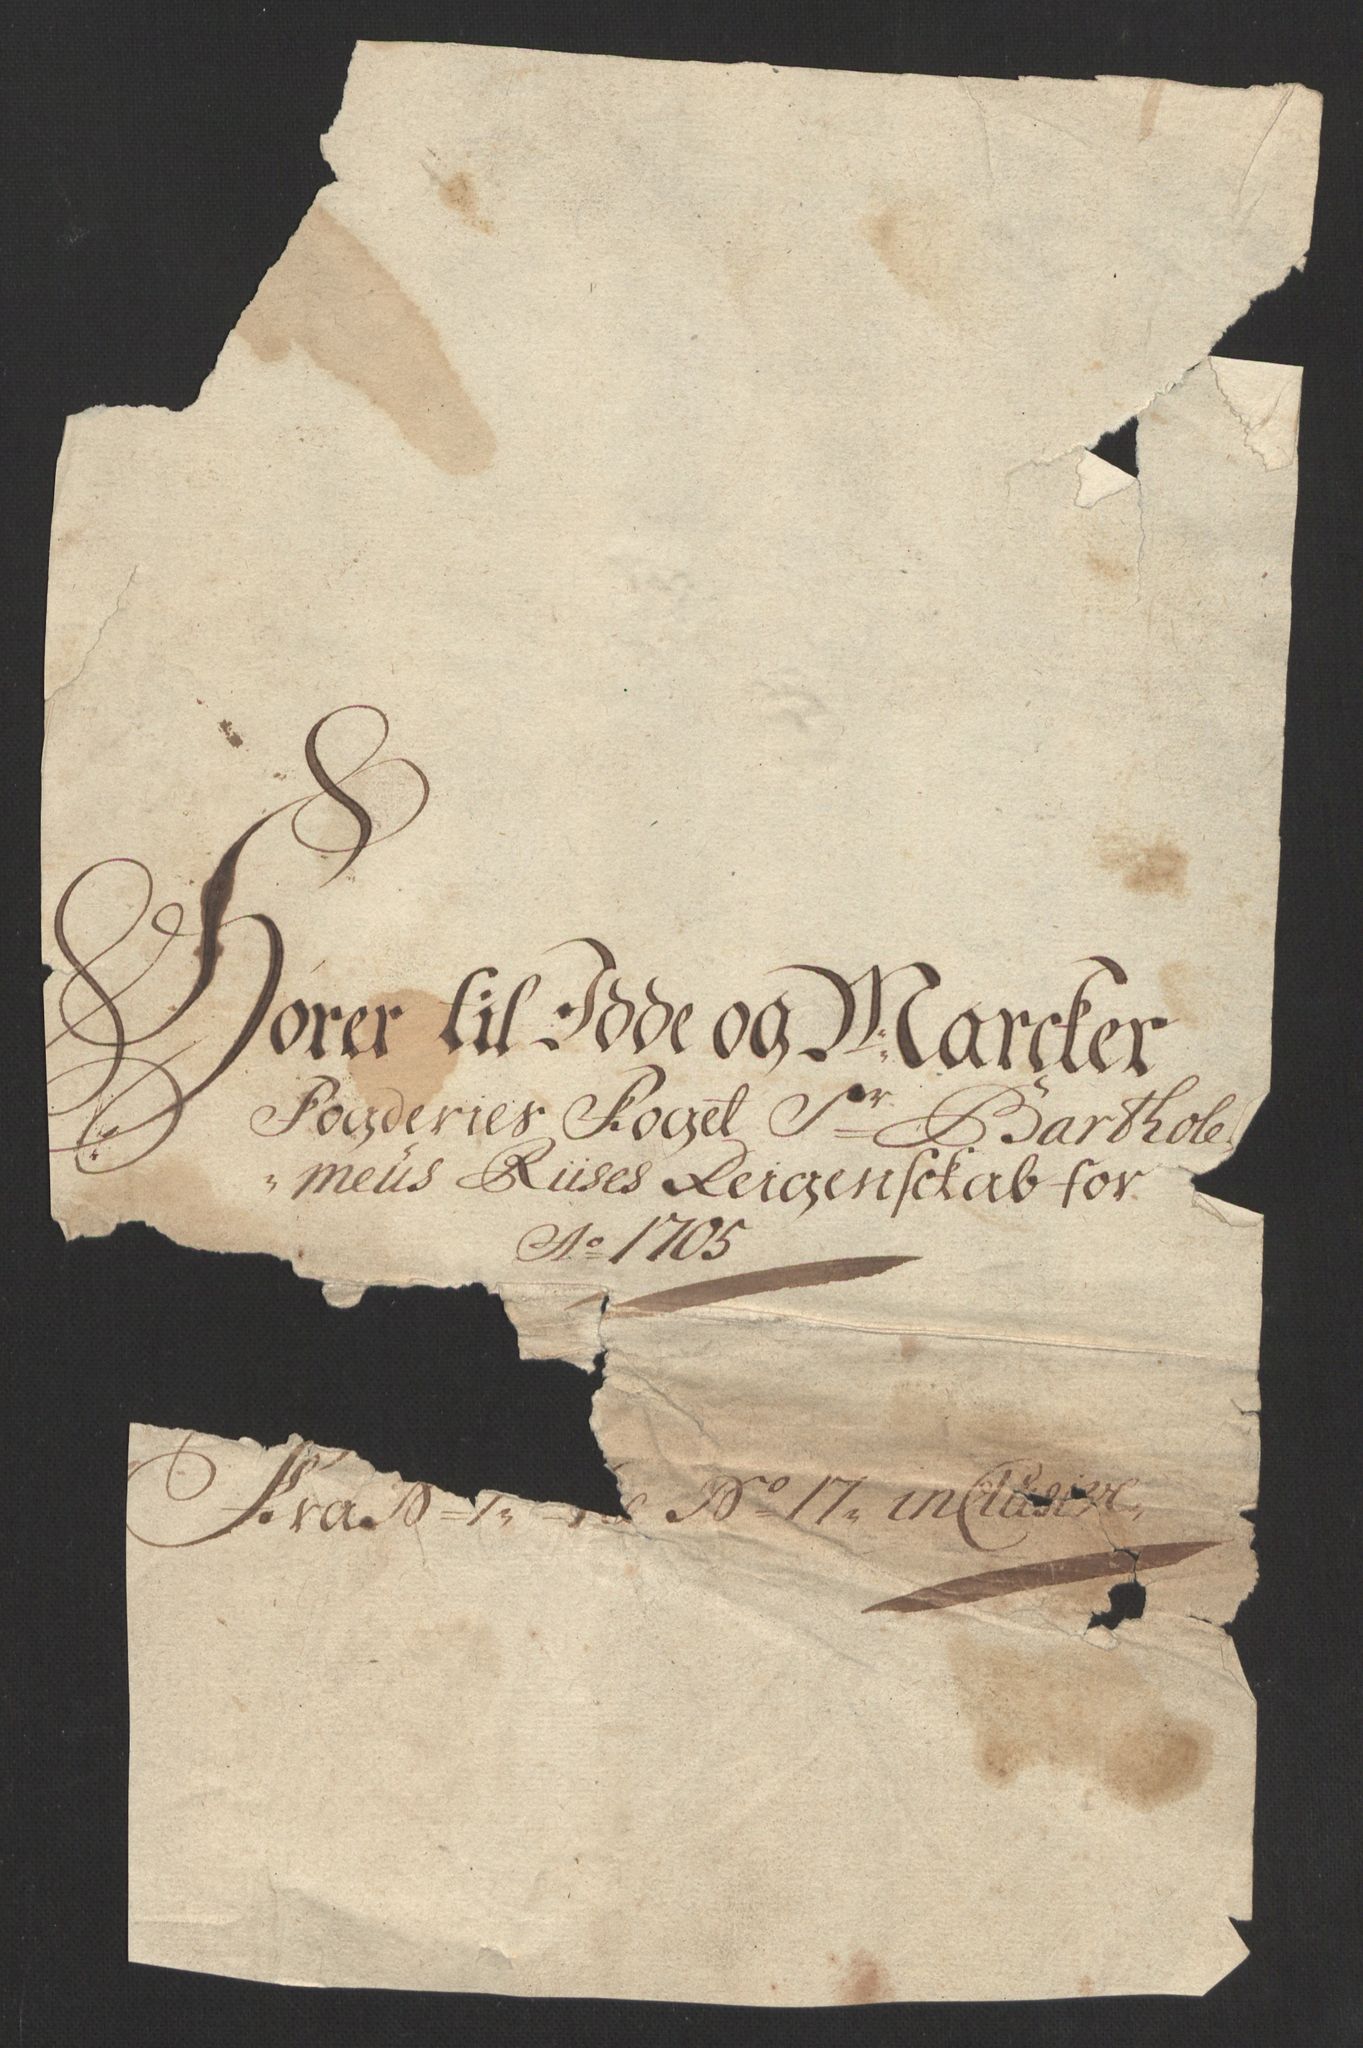 Hörer til Idde og Marcker
Fogderies Foget Sr Barthole
meüs Riises Reigenskab for
Ao 1705
Fra No 1 til No 17 inClusive